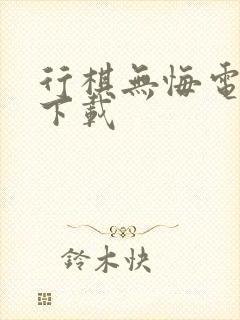 行棋無悔電
下載
鈴木快